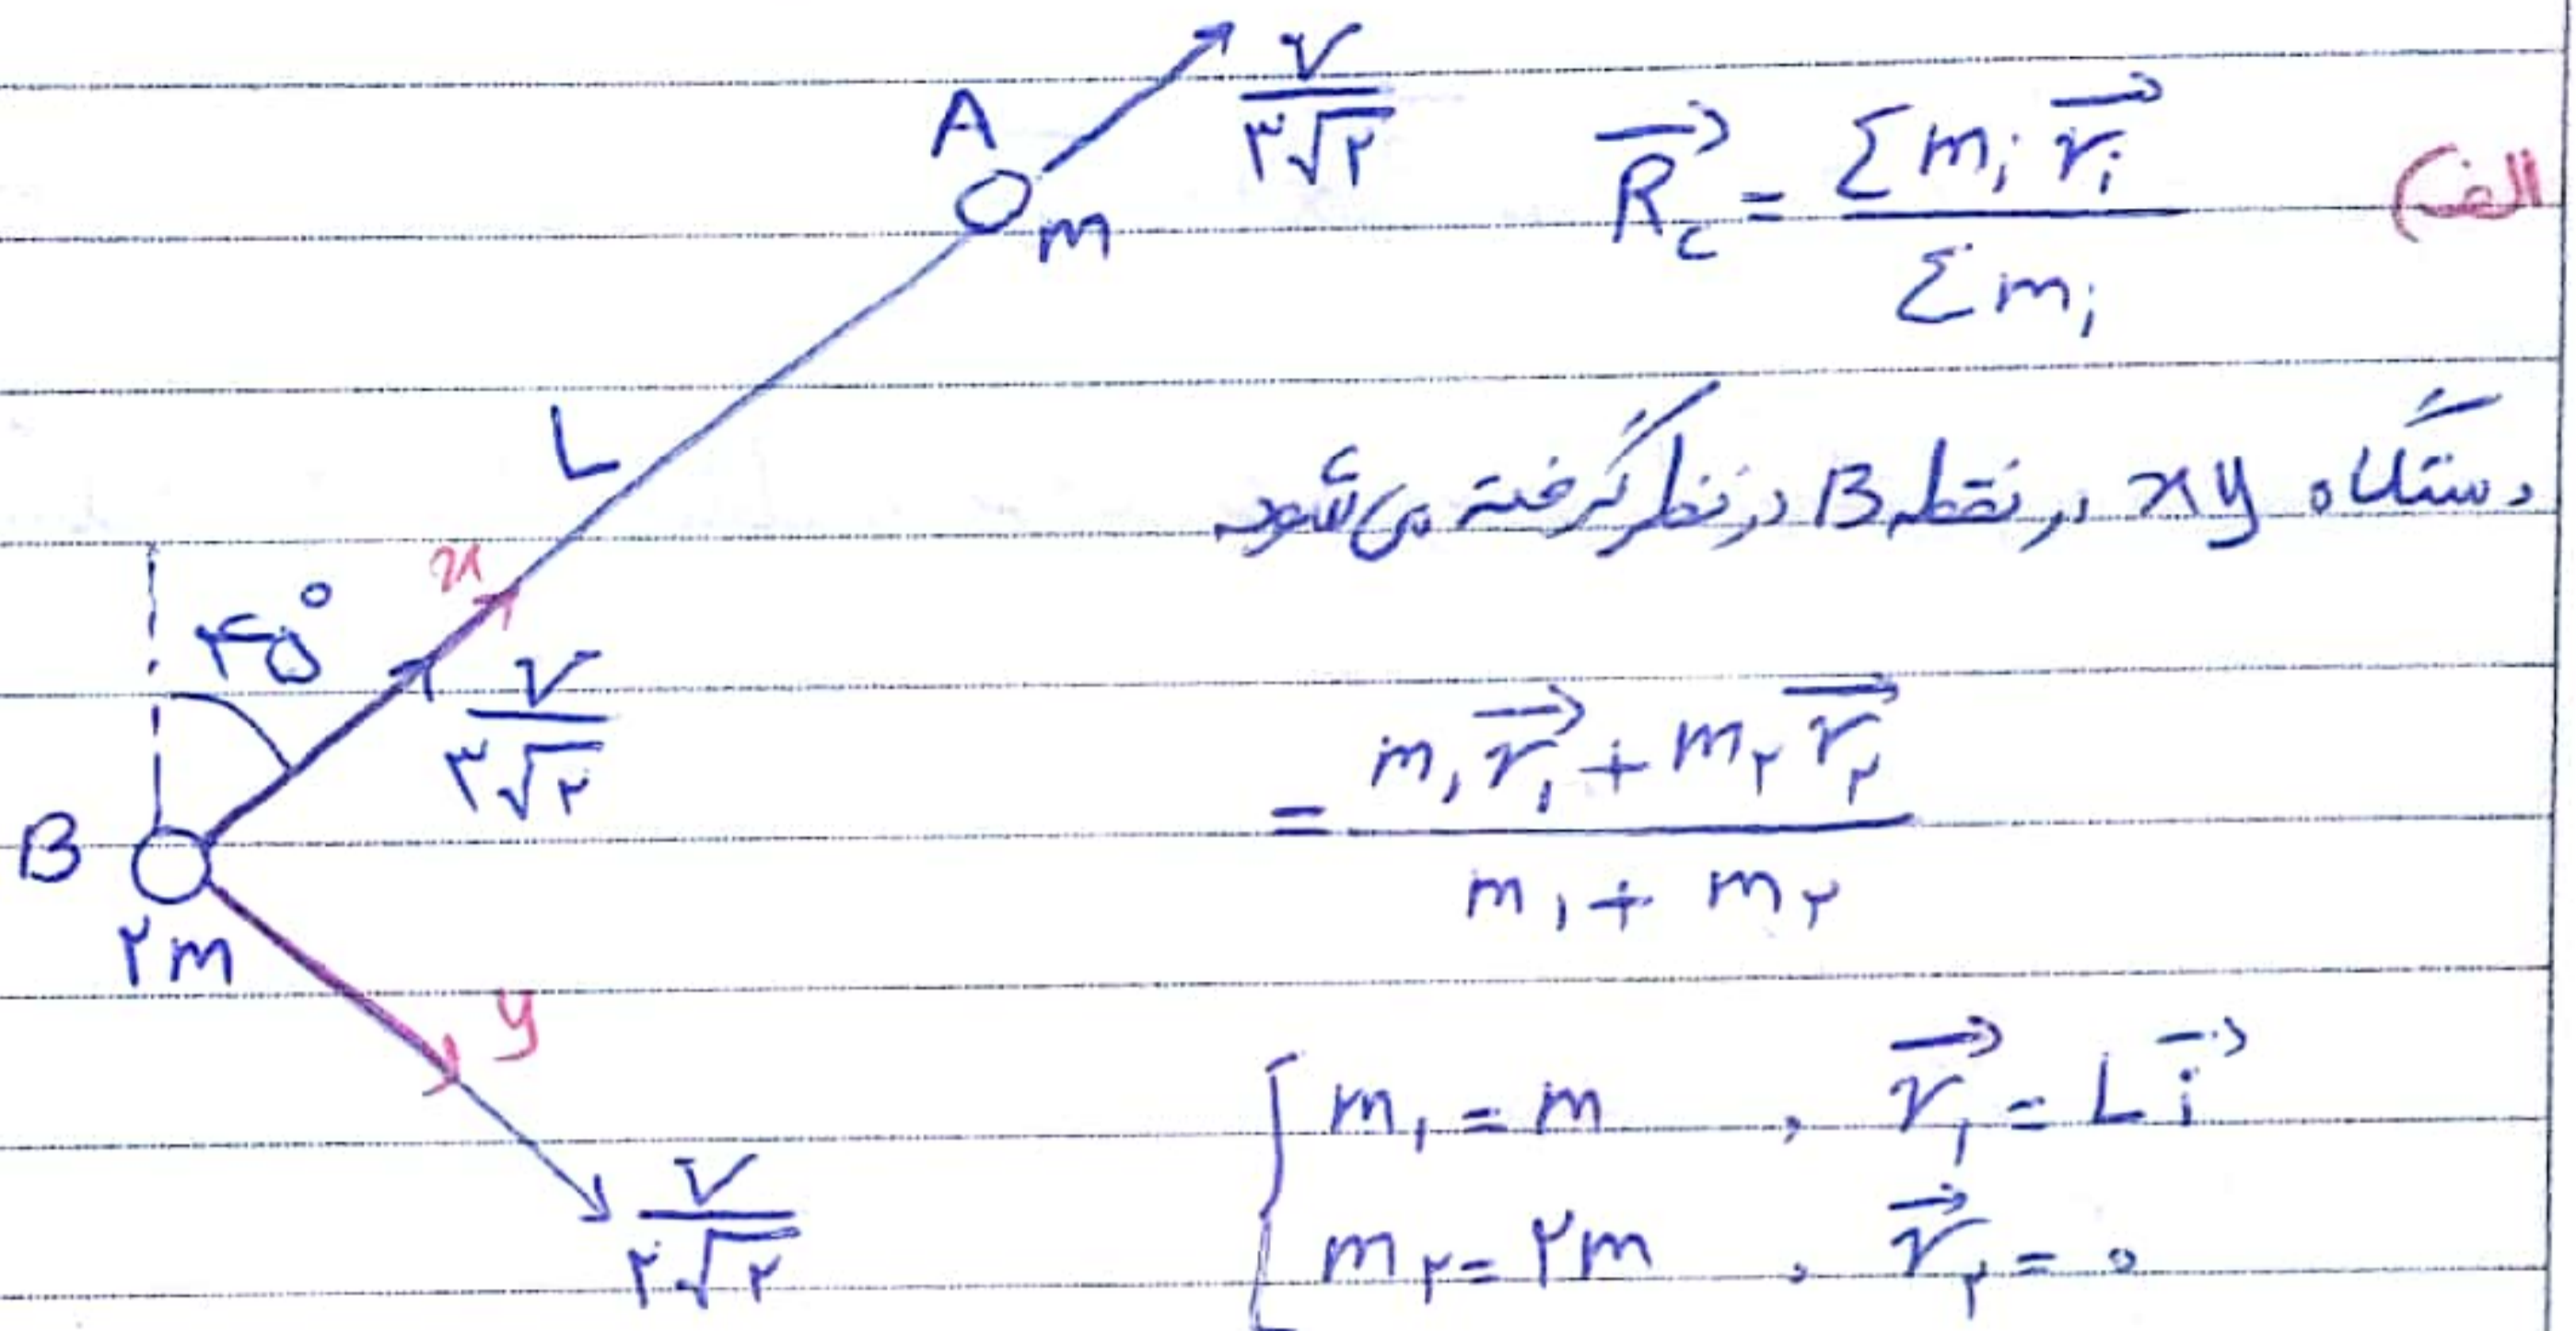 A
m
V / ۳√۲
L
x
۴۵°
V / ۳√۲
B
۲m
y
V / ۲√۲
الف)
R⃗c = Σ mᵢ r⃗ᵢ / Σ mᵢ
دستگاه xy در نقطه B در نظر گرفته می‌شود
= m₁ r⃗₁ + m₂ r⃗₂ / m₁ + m₂
m₁ = m , r⃗₁ = L i⃗
m₂ = ۲m , r⃗₂ = ۰